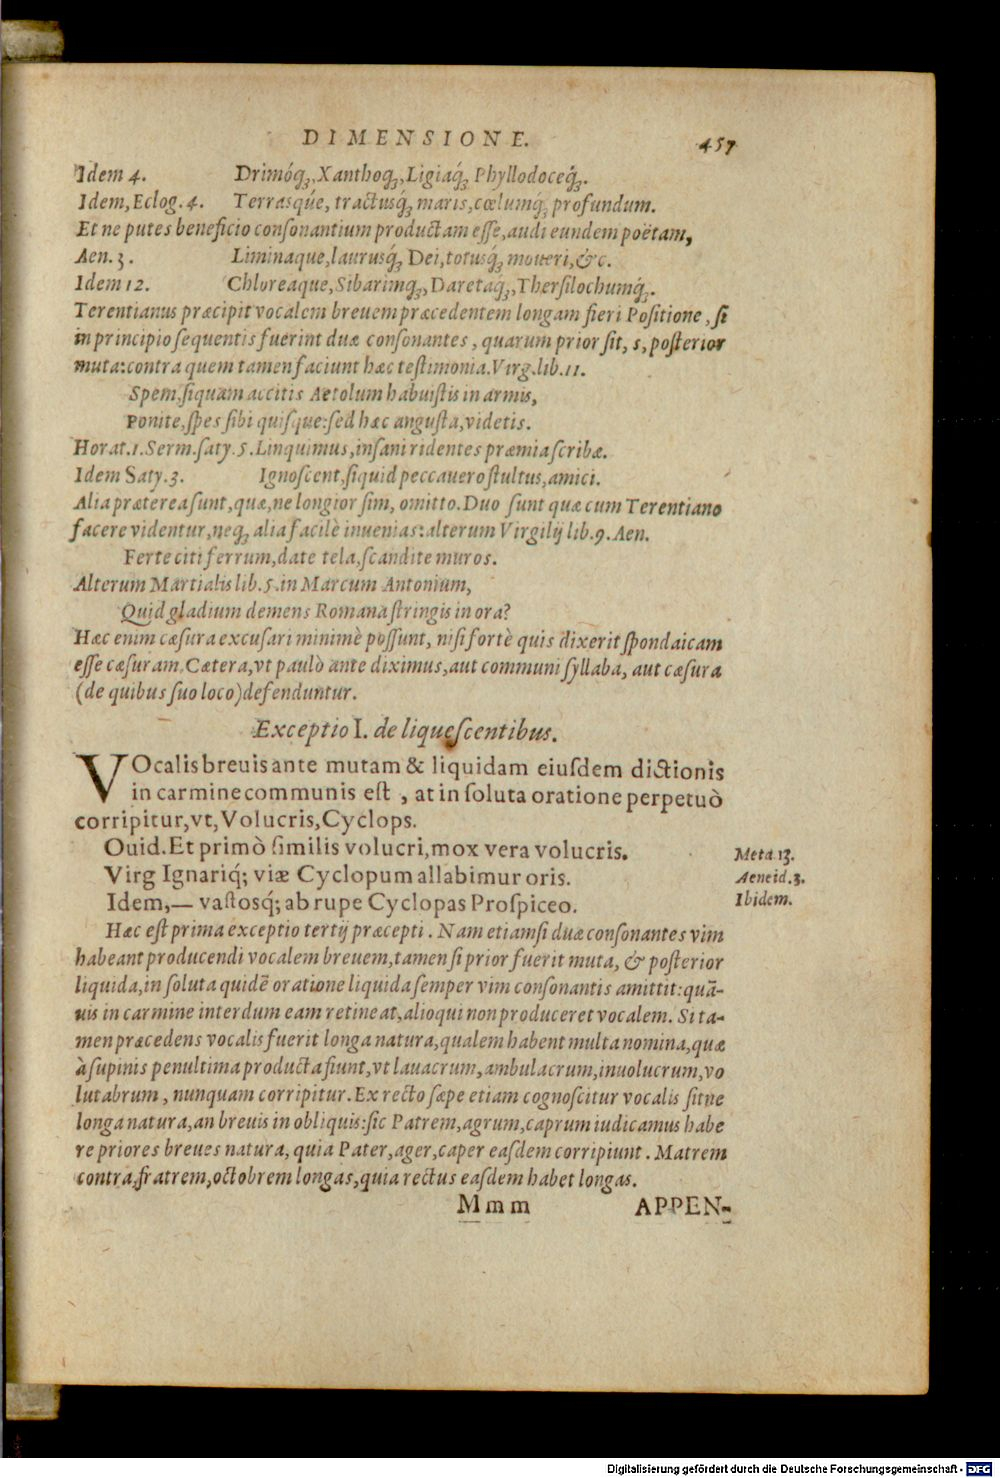 DIMENSIONE. 457
Idem 4. Drimóq́ꝫ, Xanthoq́ꝫ, Ligiaq́ꝫ Phyllodoceq́ꝫ.
Idem, Eclog. 4. Terrasqúe, tractusq́ꝫ maris, cœlumq́ꝫ profundum.
Et ne putes beneficio consonantium productam esse, audi eundem poëtam,
Aen. 3. Liminaque, laurusq́ꝫ Dei, totusq́ꝫ moueri, &c.
Idem 12. Chloreaque, Sibarimq́ꝫ, Daretaq́ꝫ, Thersilochumq́ꝫ.
Terentianus præcipit vocalem breuem præcedentem longam fieri Positione, si
in principio sequentis fuerint duæ consonantes, quarum prior sit, s, posterior
muta: contra quem tamen faciunt hæc testimonia. Virg. lib. 11.
Spem, siquam accitis Aetolum habuistis in armis,
Ponite, spes sibi quisque: sed hæc angusta, videtis.
Horat. 1. Serm. saty. 5. Linquimus, insani ridentes præmia scribæ.
Idem Saty. 3. Ignoscent, siquid peccauero stultus, amici.
Alia præterea sunt, quæ, ne longior sim, omitto. Duo sunt quæ cum Terentiano
facere videntur, neqꝫ alia facilè inuenias: alterum Virgilij lib. 9. Aen.
Ferte citi ferrum, date tela, scandite muros.
Alterum Martialis lib. 5. in Marcum Antonium,
Quid gladium demens Romana stringis in ora?
Hæc enim cæsura excusari minimè possunt, nisi fortè quis dixerit spondaicam
esse cæsuram. Cætera, vt paulò ante diximus, aut communi syllaba, aut cæsura
(de quibus suo loco) defenduntur.
Exceptio I. de liquescentibus.
VOcalis breuis ante mutam & liquidam eiusdem dictionis
in carmine communis est, at in soluta oratione perpetuò
corripitur, vt, Volucris, Cyclops.
Ouid. Et primò similis volucri, mox vera volucris. Meta. 13.
Virg Ignariq́; viæ Cyclopum allabimur oris. Aeneid. 3.
Idem, — vastosq́; ab rupe Cyclopas Prospiceo. Ibidem.
Hæc est prima exceptio tertij præcepti. Nam etiamsi duæ consonantes vim
habeant producendi vocalem breuem, tamen si prior fuerit muta, & posterior
liquida, in soluta quidē oratione liquida semper vim consonantis amittit: quā-
uis in carmine interdum eam retineat, alioqui non produceret vocalem. Si ta-
men præcedens vocalis fuerit longa natura, qualem habent multa nomina, quæ
à supinis penultima producta fiunt, vt lauacrum, ambulacrum, inuolucrum, vo
lutabrum, nunquam corripitur. Ex recto sæpe etiam cognoscitur vocalis sitne
longa natura, an breuis in obliquis: sic Patrem, agrum, caprum iudicamus habe
re priores breues natura, quia Pater, ager, caper easdem corripiunt. Matrem
contra, fratrem, octobrem longas, quia rectus easdem habet longas.
Mmm APPEN-
Digitalisierung gefördert durch die Deutsche Forschungsgemeinschaft - DFG